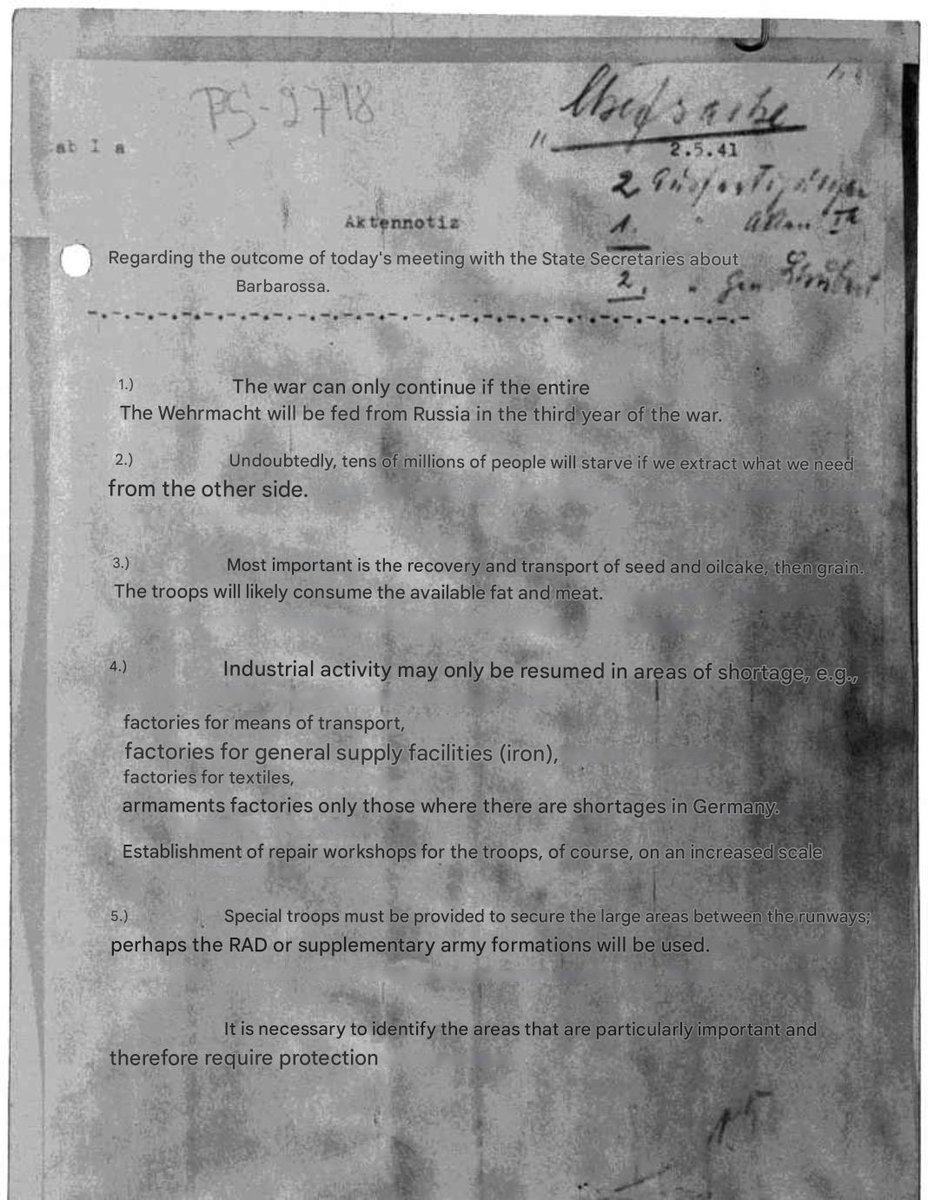 PS-2718
Chefsache
ab I a
2.5.41
2 Ausfertigungen
Aktennotiz
1. " Akten Ia
Regarding the outcome of today's meeting with the State Secretaries about
Barbarossa.
2. " Gen Schubert
1.) The war can only continue if the entire
The Wehrmacht will be fed from Russia in the third year of the war.
2.) Undoubtedly, tens of millions of people will starve if we extract what we need
from the other side.
3.) Most important is the recovery and transport of seed and oilcake, then grain.
The troops will likely consume the available fat and meat.
4.) Industrial activity may only be resumed in areas of shortage, e.g.,
factories for means of transport,
factories for general supply facilities (iron),
factories for textiles,
armaments factories only those where there are shortages in Germany.
Establishment of repair workshops for the troops, of course, on an increased scale
5.) Special troops must be provided to secure the large areas between the runways;
perhaps the RAD or supplementary army formations will be used.
It is necessary to identify the areas that are particularly important and
therefore require protection